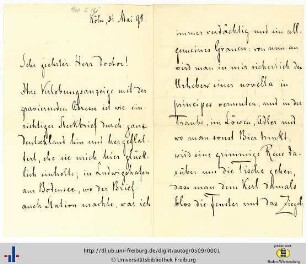 Köln, 31. Mai 98
Sehr geehrter Herr Doctor!
Ihre Verlobungsanzeige mit der
passierenden Chrom ist wie ein
richtiger Steckbrief durch ganz
Deutschland hin und her geflat-
tert, ehe sie mich hier glück-
lich einholte; in Ludwigshafen
am Bodensee, wo der Brief
auch Station machte, war ich
immer verdächtig und ein all-
gemeines Grauen: von nun an
wird man in mir sicherlich den
Urheber einer novella in
principes vermuten, und in der
Traube, im Löwen, Adler und
wo man sonst Bier trinkt,
wird eine grimmige Reue da-
rüber um die Tische gehen,
dass man dem Kerl damals
blos die Fenster und das
http://dl.ub.uni-freiburg.de/diglit/autogr0509/0001
© Universitätsbibliothek Freiburg
Baden-Württemberg